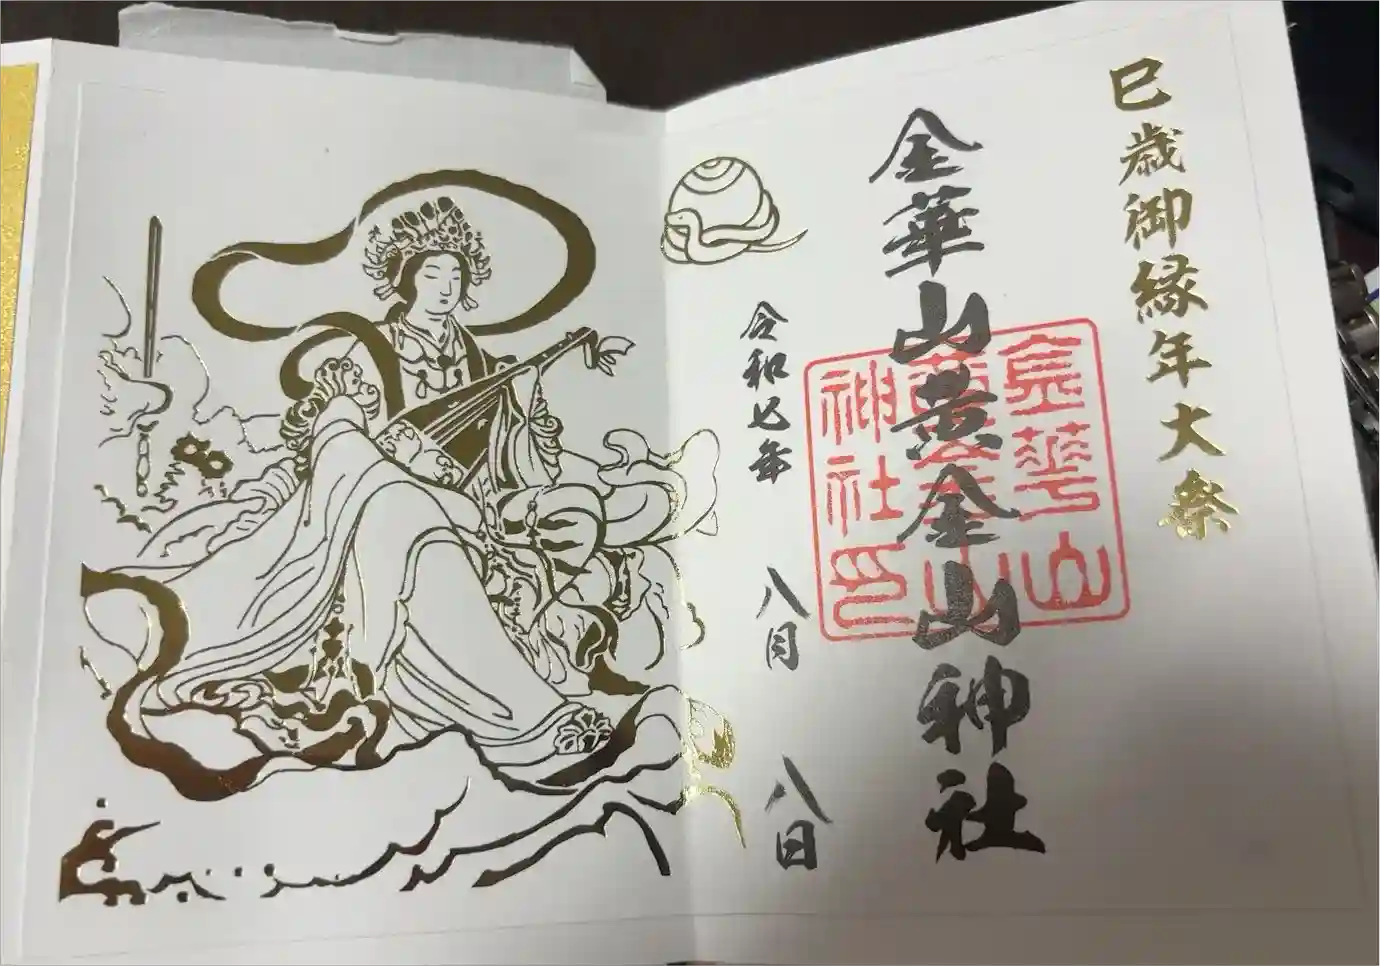 巳歳御縁年大祭
金華山黄金山神社
金華山
黄金山
神社印
令和七年 八月 八日